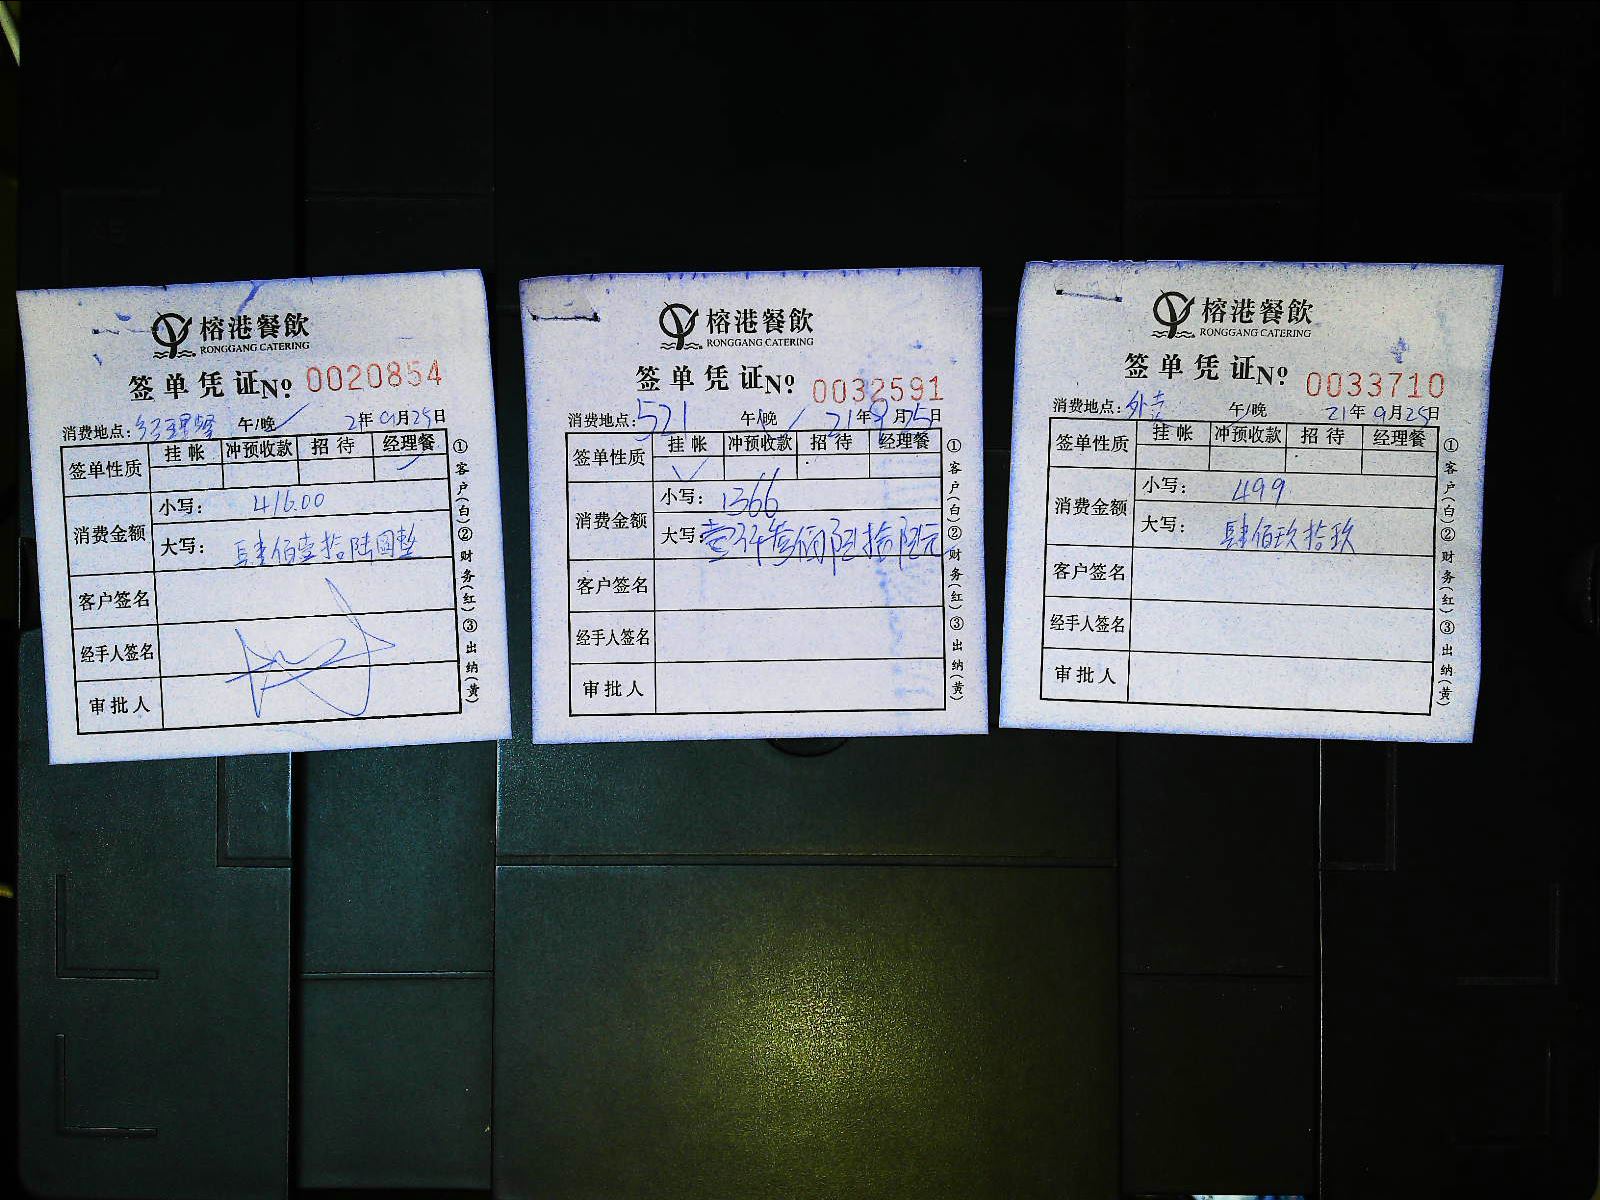 榕港餐飲
RONGGANG CATERING
签单凭证 No 0020854
消费地点: 午/晚 2年9月25日
签单性质 挂帐 冲预收款 招待 经理餐
消费金额 小写: 416.00
大写: 肆佰壹拾陆圆整
客户签名
经手人签名
审批人
①客户(白)②财务(红)③出纳(黄)
榕港餐飲
RONGGANG CATERING
签单凭证 No 0032591
消费地点: 521 午/晚 21年9月25日
签单性质 挂帐 冲预收款 招待 经理餐
消费金额 小写: 1366
大写: 壹仟叁佰陆拾陆元
客户签名
经手人签名
审批人
①客户(白)②财务(红)③出纳(黄)
榕港餐飲
RONGGANG CATERING
签单凭证 No 0033710
消费地点: 外卖 午/晚 21年9月25日
签单性质 挂帐 冲预收款 招待 经理餐
消费金额 小写: 499
大写: 肆佰玖拾玖
客户签名
经手人签名
审批人
①客户(白)②财务(红)③出纳(黄)